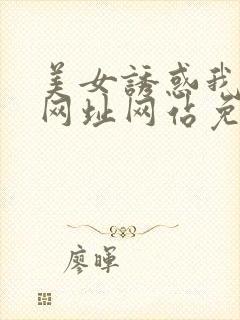 美女誘惑我
网址网佔免
廖暉